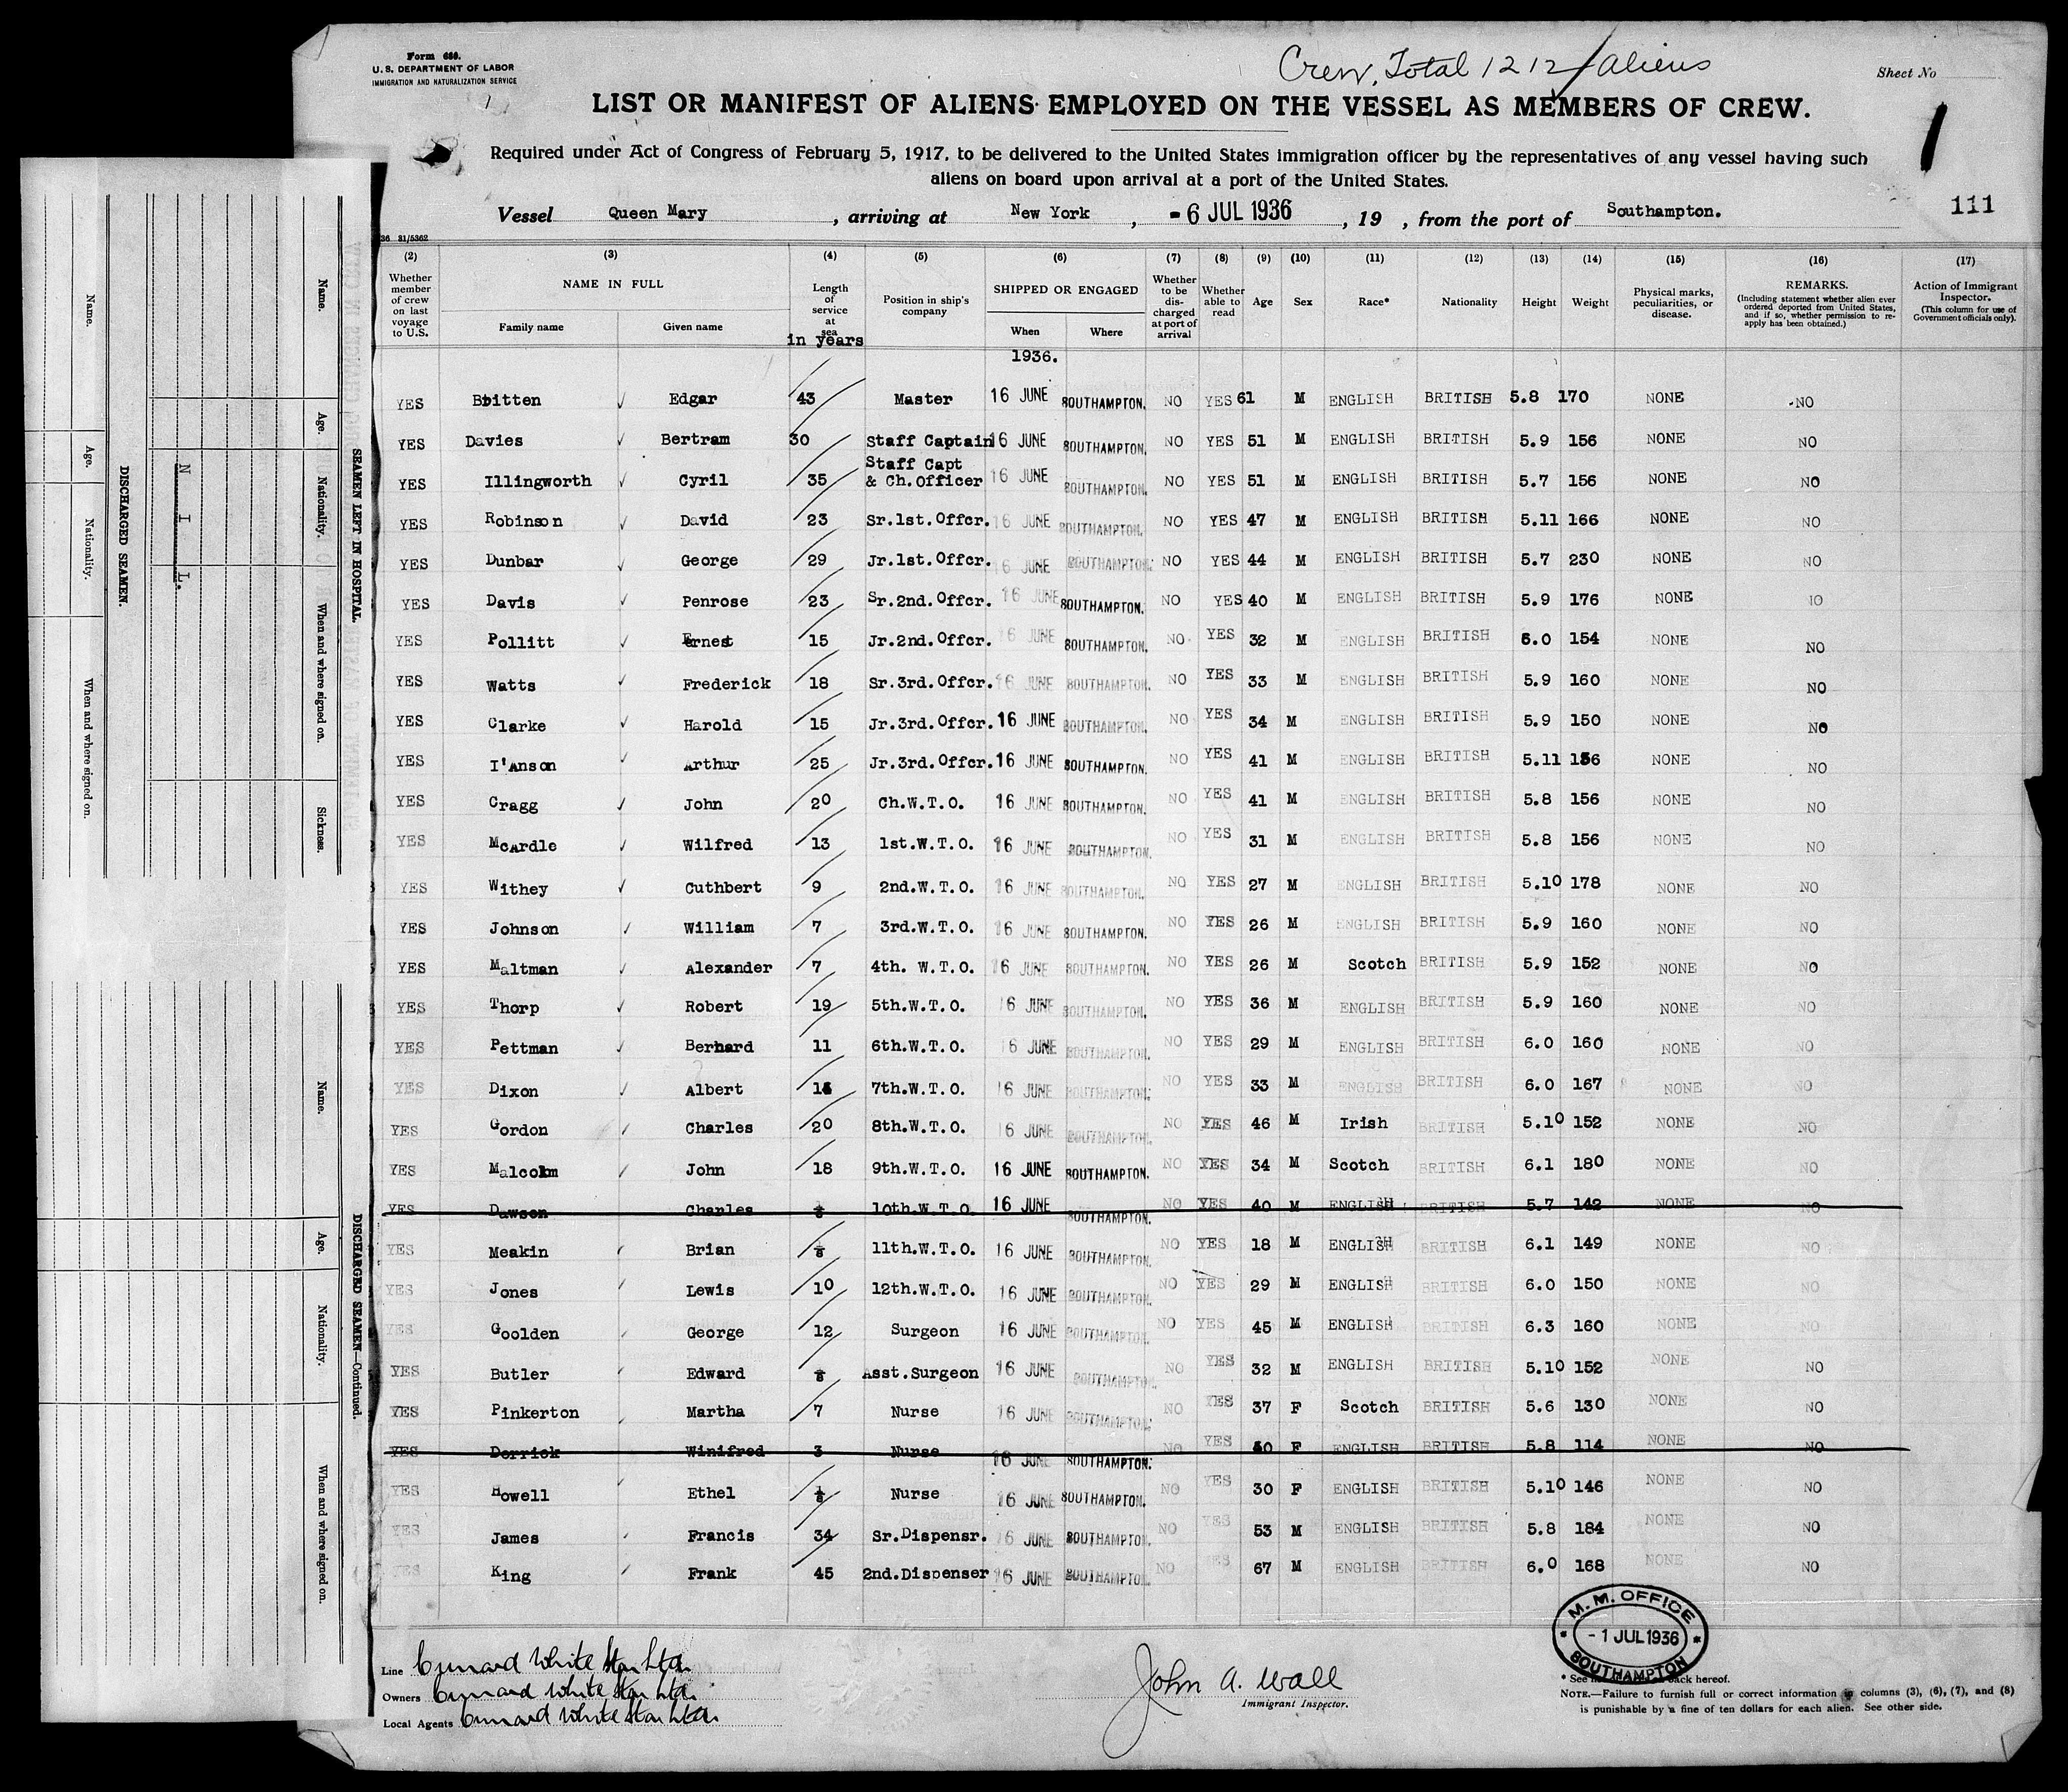 Form 680.
U. S. DEPARTMENT OF LABOR
IMMIGRATION AND NATURALIZATION SERVICE
Crew, Total 1212 aliens
Sheet No
LIST OR MANIFEST OF ALIENS EMPLOYED ON THE VESSEL AS MEMBERS OF CREW.
1
Required under Act of Congress of February 5, 1917, to be delivered to the United States immigration officer by the representatives of any vessel having such
aliens on board upon arrival at a port of the United States.
Vessel Queen Mary , arriving at New York , - 6 JUL 1936 , 19 , from the port of Southampton.
111
(2) (3) (4) (5) (6) (7) (8) (9) (10) (11) (12) (13) (14) (15) (16) (17)
Whether member of crew on last voyage to U.S.
NAME IN FULL
Family name Given name
Length of service at sea in years
Position in ship's company
SHIPPED OR ENGAGED
When Where
Whether to be discharged at port of arrival
Whether able to read
Age Sex Race* Nationality Height Weight
Physical marks, peculiarities, or disease.
REMARKS.
(Including statement whether alien ever ordered deported from United States, and if so, whether permission to re-apply has been obtained.)
Action of Immigrant Inspector.
(This column for use of Government officials only).
1936.
YES Britten Edgar 43 Master 16 JUNE SOUTHAMPTON. NO YES 61 M ENGLISH BRITISH 5.8 170 NONE NO
YES Davies Bertram 30 Staff Captain 16 JUNE SOUTHAMPTON. NO YES 51 M ENGLISH BRITISH 5.9 156 NONE NO
YES Illingworth Cyril 35 Staff Capt & Ch.Officer 16 JUNE SOUTHAMPTON. NO YES 51 M ENGLISH BRITISH 5.7 156 NONE NO
YES Robinson David 23 Sr.1st.Offcr. 16 JUNE SOUTHAMPTON. NO YES 47 M ENGLISH BRITISH 5.11 166 NONE NO
YES Dunbar George 29 Jr.1st.Offcr. 16 JUNE SOUTHAMPTON. NO YES 44 M ENGLISH BRITISH 5.7 230 NONE NO
YES Davis Penrose 23 Sr.2nd.Offcr. 16 JUNE SOUTHAMPTON. NO YES 40 M ENGLISH BRITISH 5.9 176 NONE NO
YES Pollitt Ernest 15 Jr.2nd.Offcr. 16 JUNE SOUTHAMPTON. NO YES 32 M ENGLISH BRITISH 6.0 154 NONE NO
YES Watts Frederick 18 Sr.3rd.Offcr. 16 JUNE SOUTHAMPTON. NO YES 33 M ENGLISH BRITISH 5.9 160 NONE NO
YES Clarke Harold 15 Jr.3rd.Offcr. 16 JUNE SOUTHAMPTON. NO YES 34 M ENGLISH BRITISH 5.9 150 NONE NO
YES I'Anson Arthur 25 Jr.3rd.Offcr. 16 JUNE SOUTHAMPTON. NO YES 41 M ENGLISH BRITISH 5.11 NONE NO
YES Cragg John 20 Ch.W.T.O. 16 JUNE SOUTHAMPTON. NO YES 41 M ENGLISH BRITISH 5.8 156 NONE NO
YES McArdle Wilfred 13 1st.W.T.O. 16 JUNE SOUTHAMPTON. NO YES 31 M ENGLISH BRITISH 5.8 156 NONE NO
YES Withey Cuthbert 9 2nd.W.T.O. 16 JUNE SOUTHAMPTON. NO YES 27 M ENGLISH BRITISH 5.10 178 NONE NO
YES Johnson William 7 3rd.W.T.O. 16 JUNE SOUTHAMPTON. NO YES 26 M ENGLISH BRITISH 5.9 160 NONE NO
YES Maltman Alexander 7 4th. W.T.O. 16 JUNE SOUTHAMPTON. NO YES 26 M Scotch BRITISH 5.9 152 NONE NO
YES Thorp Robert 19 5th.W.T.O. 16 JUNE SOUTHAMPTON. NO YES 36 M ENGLISH BRITISH 5.9 160 NONE NO
YES Pettman Bernard 11 6th.W.T.O. 16 JUNE SOUTHAMPTON. NO YES 29 M ENGLISH BRITISH 6.0 160 NONE NO
YES Dixon Albert 7th.W.T.O. 16 JUNE SOUTHAMPTON. NO YES 33 M ENGLISH BRITISH 6.0 167 NONE NO
YES Gordon Charles 20 8th.W.T.O. 16 JUNE SOUTHAMPTON. NO YES 46 M Irish BRITISH 5.10 152 NONE NO
YES Malcolm John 18 9th.W.T.O. 16 JUNE SOUTHAMPTON. NO YES 34 M Scotch BRITISH 6.1 180 NONE NO
YES Dawson Charles 10th.W.T.O. 16 JUNE SOUTHAMPTON. NO YES 40 M ENGLISH BRITISH 5.7 142 NONE NO
YES Meakin Brian 11th.W.T.O. 16 JUNE SOUTHAMPTON. NO YES 18 M ENGLISH BRITISH 6.1 149 NONE NO
YES Jones Lewis 10 12th.W.T.O. 16 JUNE SOUTHAMPTON. NO YES 29 M ENGLISH BRITISH 6.0 150 NONE NO
YES Goolden George 12 Surgeon 16 JUNE SOUTHAMPTON. NO YES 45 M ENGLISH BRITISH 6.3 160 NONE NO
YES Butler Edward Asst.Surgeon 16 JUNE SOUTHAMPTON. NO YES 32 M ENGLISH BRITISH 5.10 152 NONE NO
YES Pinkerton Martha 7 Nurse 16 JUNE SOUTHAMPTON. NO YES 37 F Scotch BRITISH 5.6 130 NONE NO
YES Derrick Winifred 3 Nurse 16 JUNE SOUTHAMPTON. NO YES F ENGLISH BRITISH 5.8 114 NONE NO
YES Howell Ethel Nurse 16 JUNE SOUTHAMPTON. NO YES 30 F ENGLISH BRITISH 5.10 146 NONE NO
YES James Francis 34 Sr.Dispensr. 16 JUNE SOUTHAMPTON. NO YES 53 M ENGLISH BRITISH 5.8 184 NONE NO
YES King Frank 45 2nd.Dispenser 16 JUNE SOUTHAMPTON. NO YES 67 M ENGLISH BRITISH 6.0 168 NONE NO
M. M. OFFICE
- 1 JUL 1936
SOUTHAMPTON
Line Cunard White Star Ltd
Owners Cunard White Star Ltd
Local Agents Cunard White Star Ltd
John A. Wall
Immigrant Inspector.
* See back hereof.
NOTE.—Failure to furnish full or correct information in columns (3), (6), (7), and (8)
is punishable by a fine of ten dollars for each alien. See other side.
SEAMEN LEFT IN HOSPITAL.
Name. Age. Nationality. When and where signed on. Sickness.
NIL.
DISCHARGED SEAMEN.
Name. Age. Nationality. When and where signed on.
DISCHARGED SEAMEN—Continued.
Name. Age. Nationality. When and where signed on.